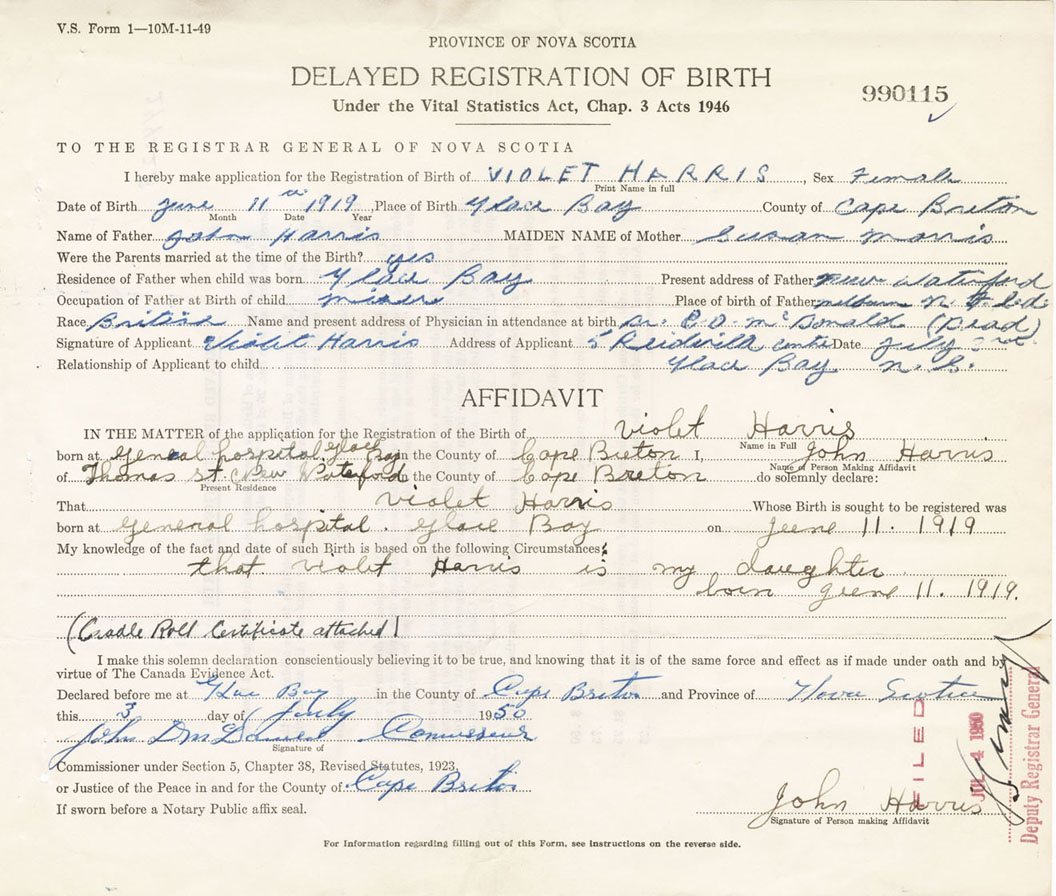 V.S. Form 1—10M-11-49
PROVINCE OF NOVA SCOTIA
DELAYED REGISTRATION OF BIRTH
990115
Under the Vital Statistics Act, Chap. 3 Acts 1946
TO THE REGISTRAR GENERAL OF NOVA SCOTIA
I hereby make application for the Registration of Birth of VIOLET HARRIS, Sex Female
Print Name in full
Date of Birth June 11 1919, Place of Birth Glace Bay County of Cape Breton
Month Date Year
Name of Father John Harris MAIDEN NAME of Mother Susan Morris
Were the Parents married at the time of the Birth? yes
Residence of Father when child was born Glace Bay Present address of Father New Waterford
Occupation of Father at Birth of child miner Place of birth of Father
Race British Name and present address of Physician in attendance at birth Dr. McDonald (Dead)
Signature of Applicant Violet Harris Address of Applicant 5 Date July
Relationship of Applicant to child Glace Bay N.S.
AFFIDAVIT
IN THE MATTER of the application for the Registration of the Birth of violet Harris
Name in Full
born at General hospital Glace Bay in the County of Cape Breton I, John Harris
Name of Person Making Affidavit
of Thomas st. New Waterford the County of Cape Breton do solemnly declare:
Present Residence
That violet Harris Whose Birth is sought to be registered was
born at General hospital. Glace Bay on June 11. 1919
My knowledge of the fact and date of such Birth is based on the following Circumstances:
that violet Harris is my daughter
born June 11. 1919.
(Cradle Roll Certificate attached)
I make this solemn declaration conscientiously believing it to be true, and knowing that it is of the same force and effect as if made under oath and by
virtue of The Canada Evidence Act.
Declared before me at Glace Bay in the County of Cape Breton and Province of Nova Scotia
this 3 day of July 1950
John
Signature of
Commissioner under Section 5, Chapter 38, Revised Statutes, 1923,
or Justice of the Peace in and for the County of Cape Breton
If sworn before a Notary Public affix seal.
John Harris
Signature of Person making Affidavit
FILED
JUL 4 1950
Deputy Registrar General
For Information regarding filling out of this Form, see instructions on the reverse side.